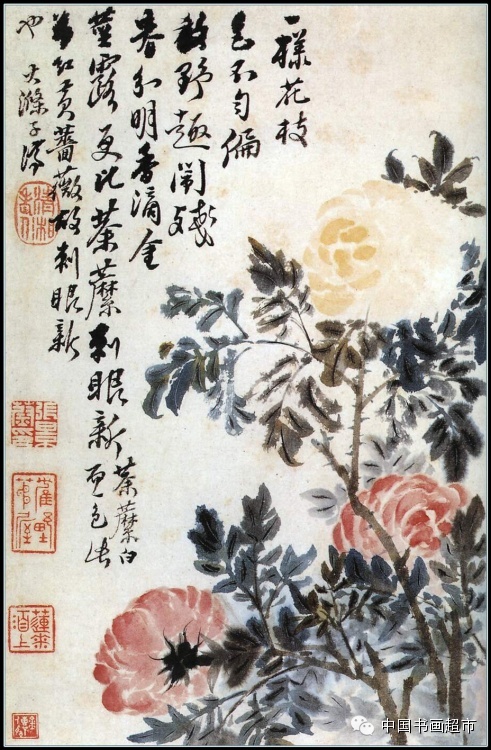 一樣花枝
色不勻偏
教野趣鬧殘
春分明香滴金
莖露更比荼蘼刺眼新
荼蘼白
而色
為紅黃薔薇故刺眼新
也 大滌子濟
清湘老人
中国书画超市